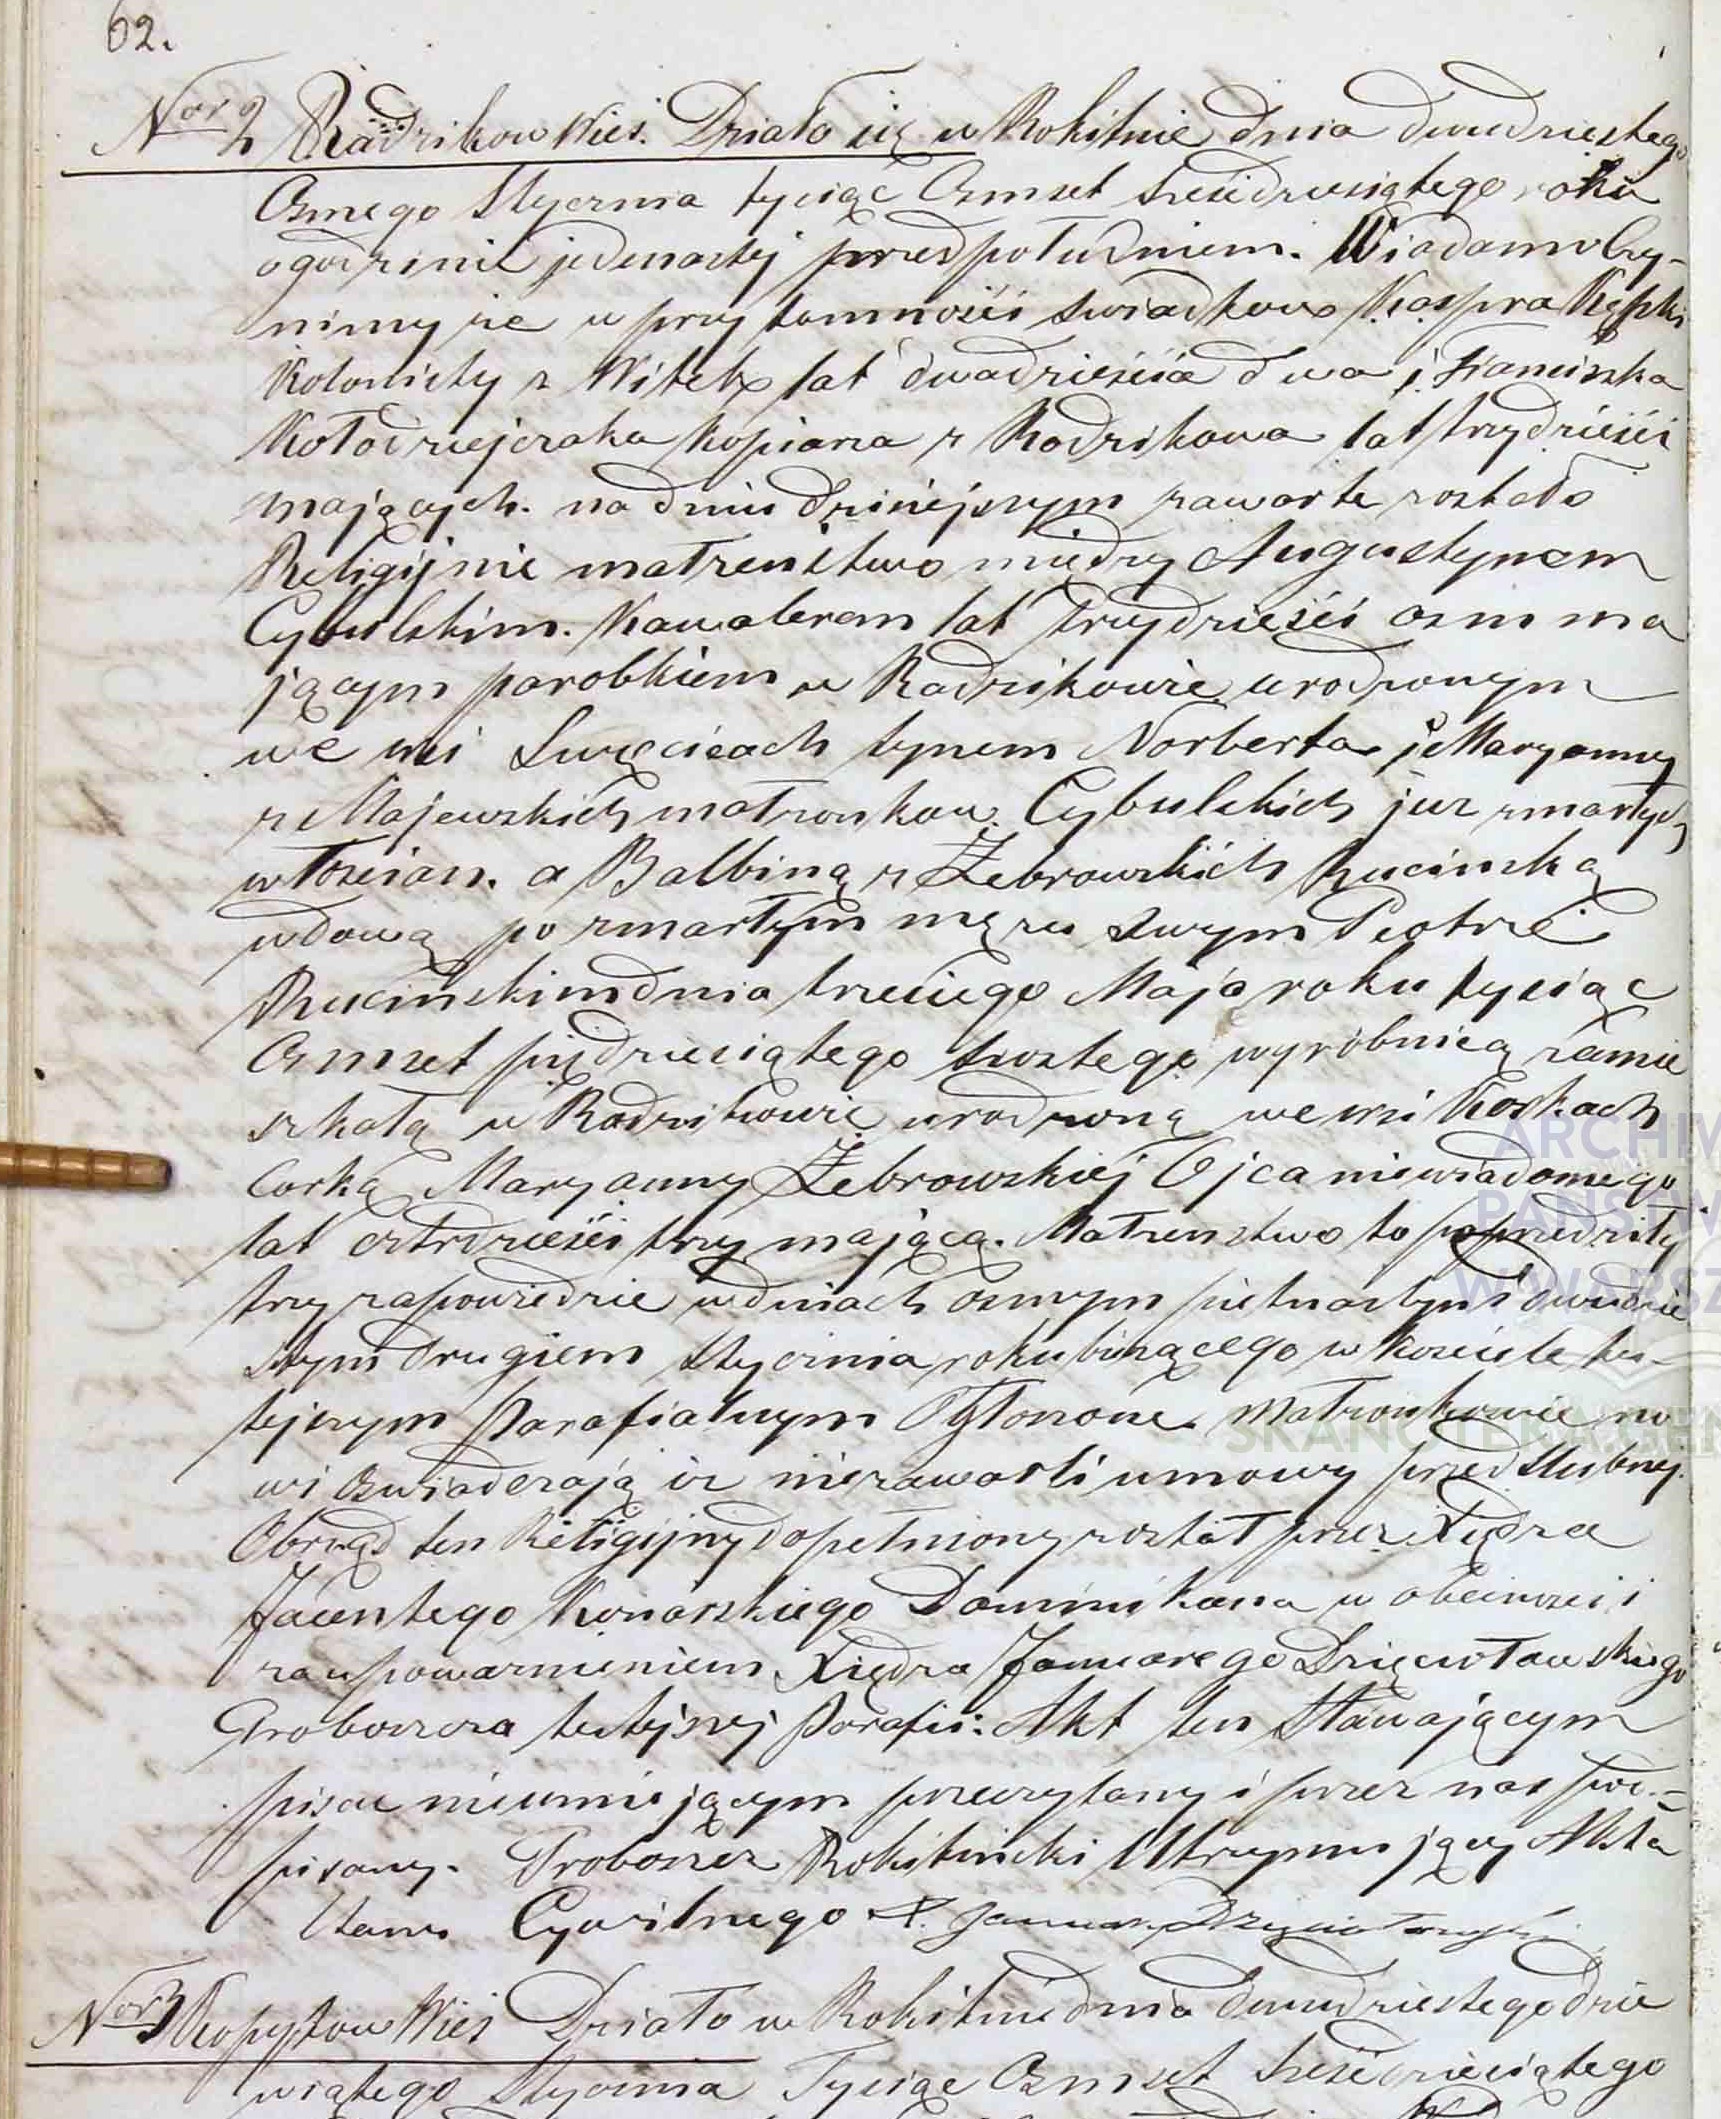 62.
Nor 2 Radzikow Wieś. Działo się w Rokitnie dnia dwudziestego
Osmego Stycznia tysiąc Osmset sześcdziesiątego roku
o godzinie jedenastej przed południem. Wiadomo Czy-
nimy że w przytomności swiadkow Kaspra Kępki
Kolonisty z Witek lat dwadzieścia dwa i Franciszka
Kołodziejczaka Kopiarza z Radzikowa lat trzydzieści
mających. na dniu dzisiejszym zawarte zostało
Religijnie małżeństwo między Augustynem
Cybulskim. Kawalerem lat trzydzieści osm ma
jącym parobkiem w Radzikowie urodzonym
we wsi Swięcicach synem Norberta i Maryanny
z Majewskich małżonkow Cybulskich juz zmarłych
włoscian. a Balbiną z Żebrowskich Rucinską
wdową po zmarłym mężu swym Piotrze
Rucińskim dnia trzeciego Maja roku tysiąc
Osmset piędziesiątego szostego wyrobnicą zamie
szkałą w Radzikowie urodzoną we wsi Koskach
Corką Maryanny Żebrowskiej Ojca niewiadomego
lat cztrdzieści trzy mającą. Małzenstwo to poprzedziły
trzy zapowiedzie w dniach osmym pietnastym i dwudzie
stym drugiem Stycznia roku bieżącego w kosciele tu-
tejszym Parafialnym Ogłoszone. Małżonkowie no
wi Oswiadczają iz niezawarli umowy przed slubnej.
Obrząd ten Religijny dopełniony został przez Xiędza
Jacentego Konarskiego Dominikana w obecnosci i
za upowaznieniem Xiędza Januarego Drzewłowskiego
Proboszcza tutejszej Parafii: Akt ten Stawającym
pisac nieumiejącym przeczytany i przez nas pod-
pisany. Proboszcz Rokitnicki Utrzymujący Akta
Stanu Cywilnego X. Januar
Nor 3 Kopytow Wieś Działo w Rokitnie dnia dwudziestego dzie
wiątego Stycznia Tysiąc Osmset Sześcdziesiątego
ARCHIW
PAŃSTW
W WARSZ
SKANOTEKA.GEN